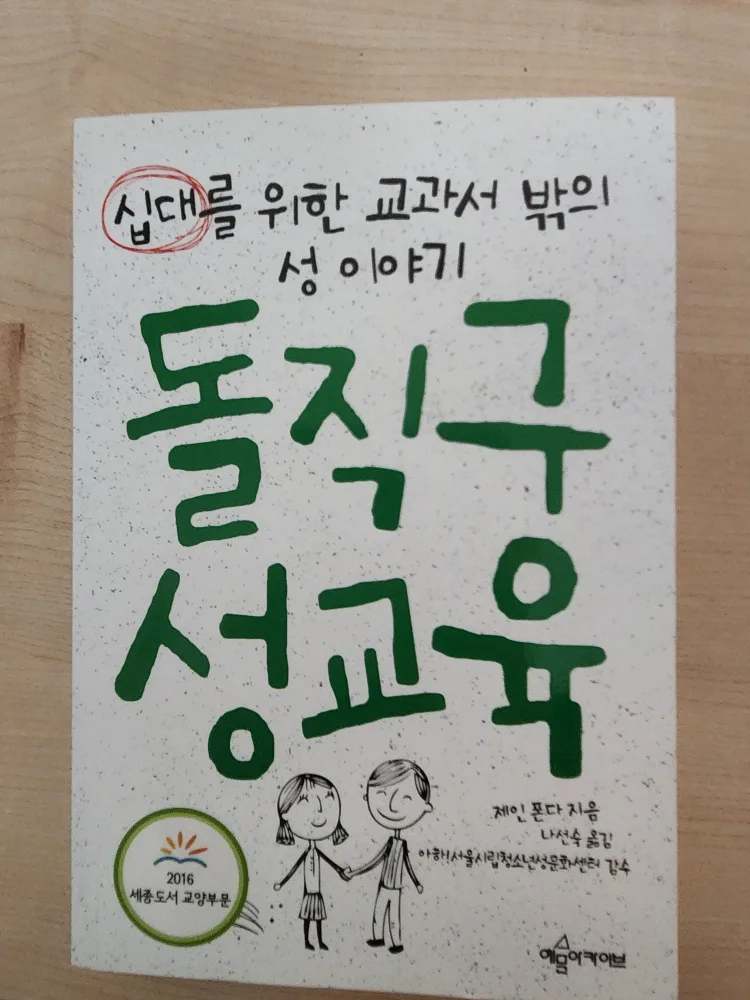 십대를 위한 교과서 밖의
성 이야기
돌직구
성교육
제인 폰다 지음
나선숙 옮김
아하!서울시립청소년성문화센터 감수
2016
세종도서 교양부문
예문아카이브